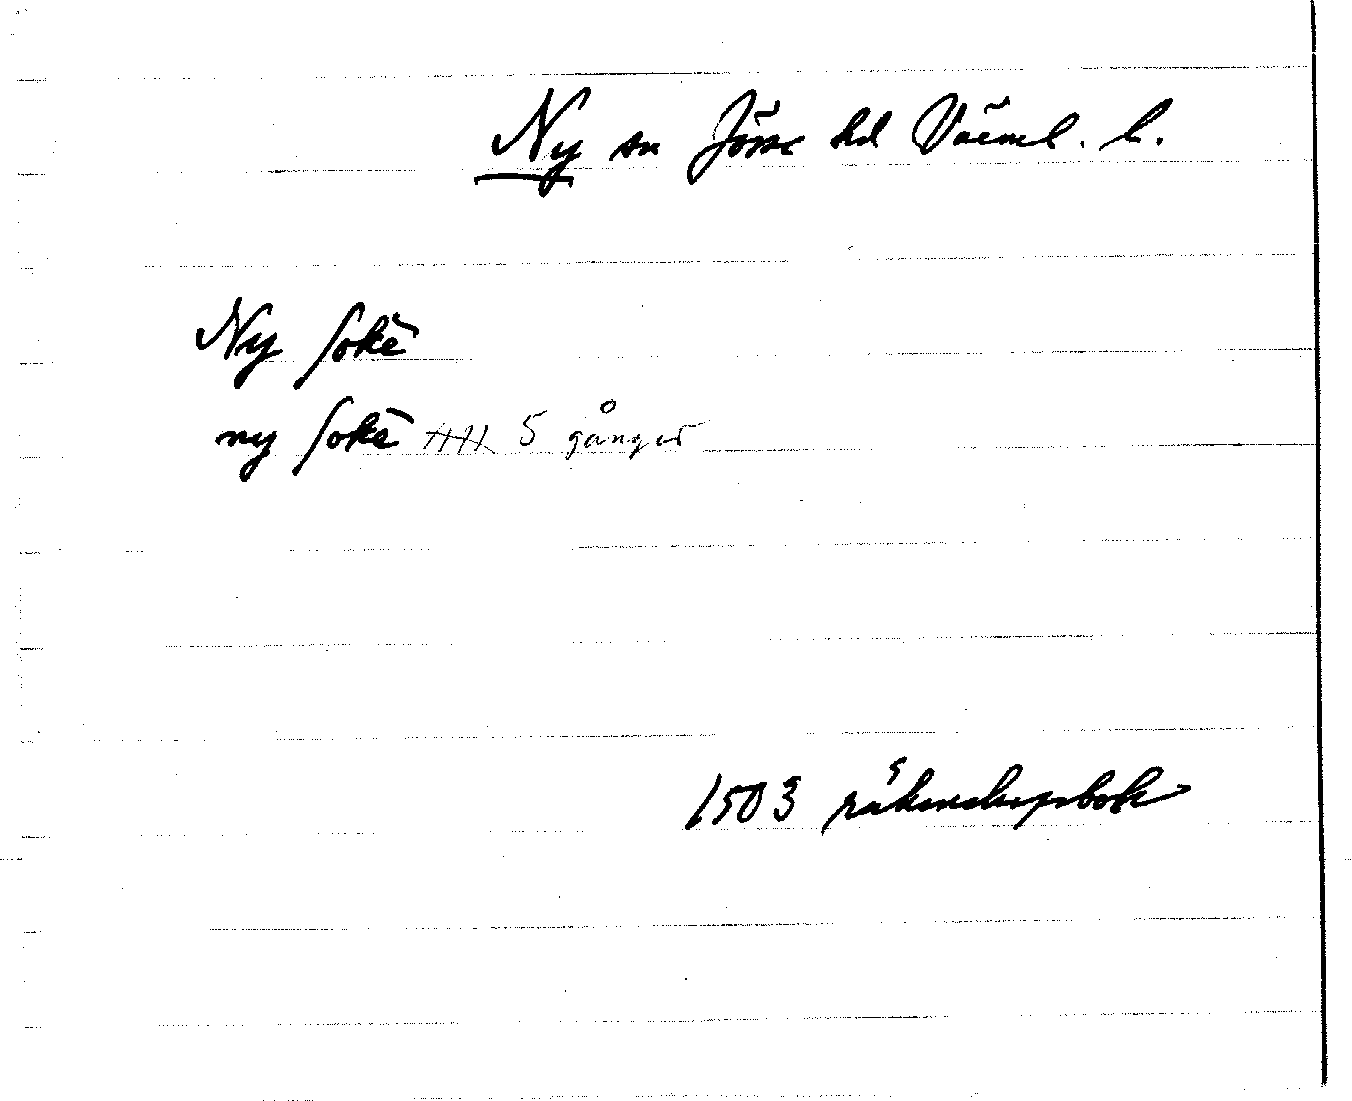 Ny sn Jösse hd Värml. l.
Ny sokē
ny sokē 5 gånger
1503 räkenskapsbok